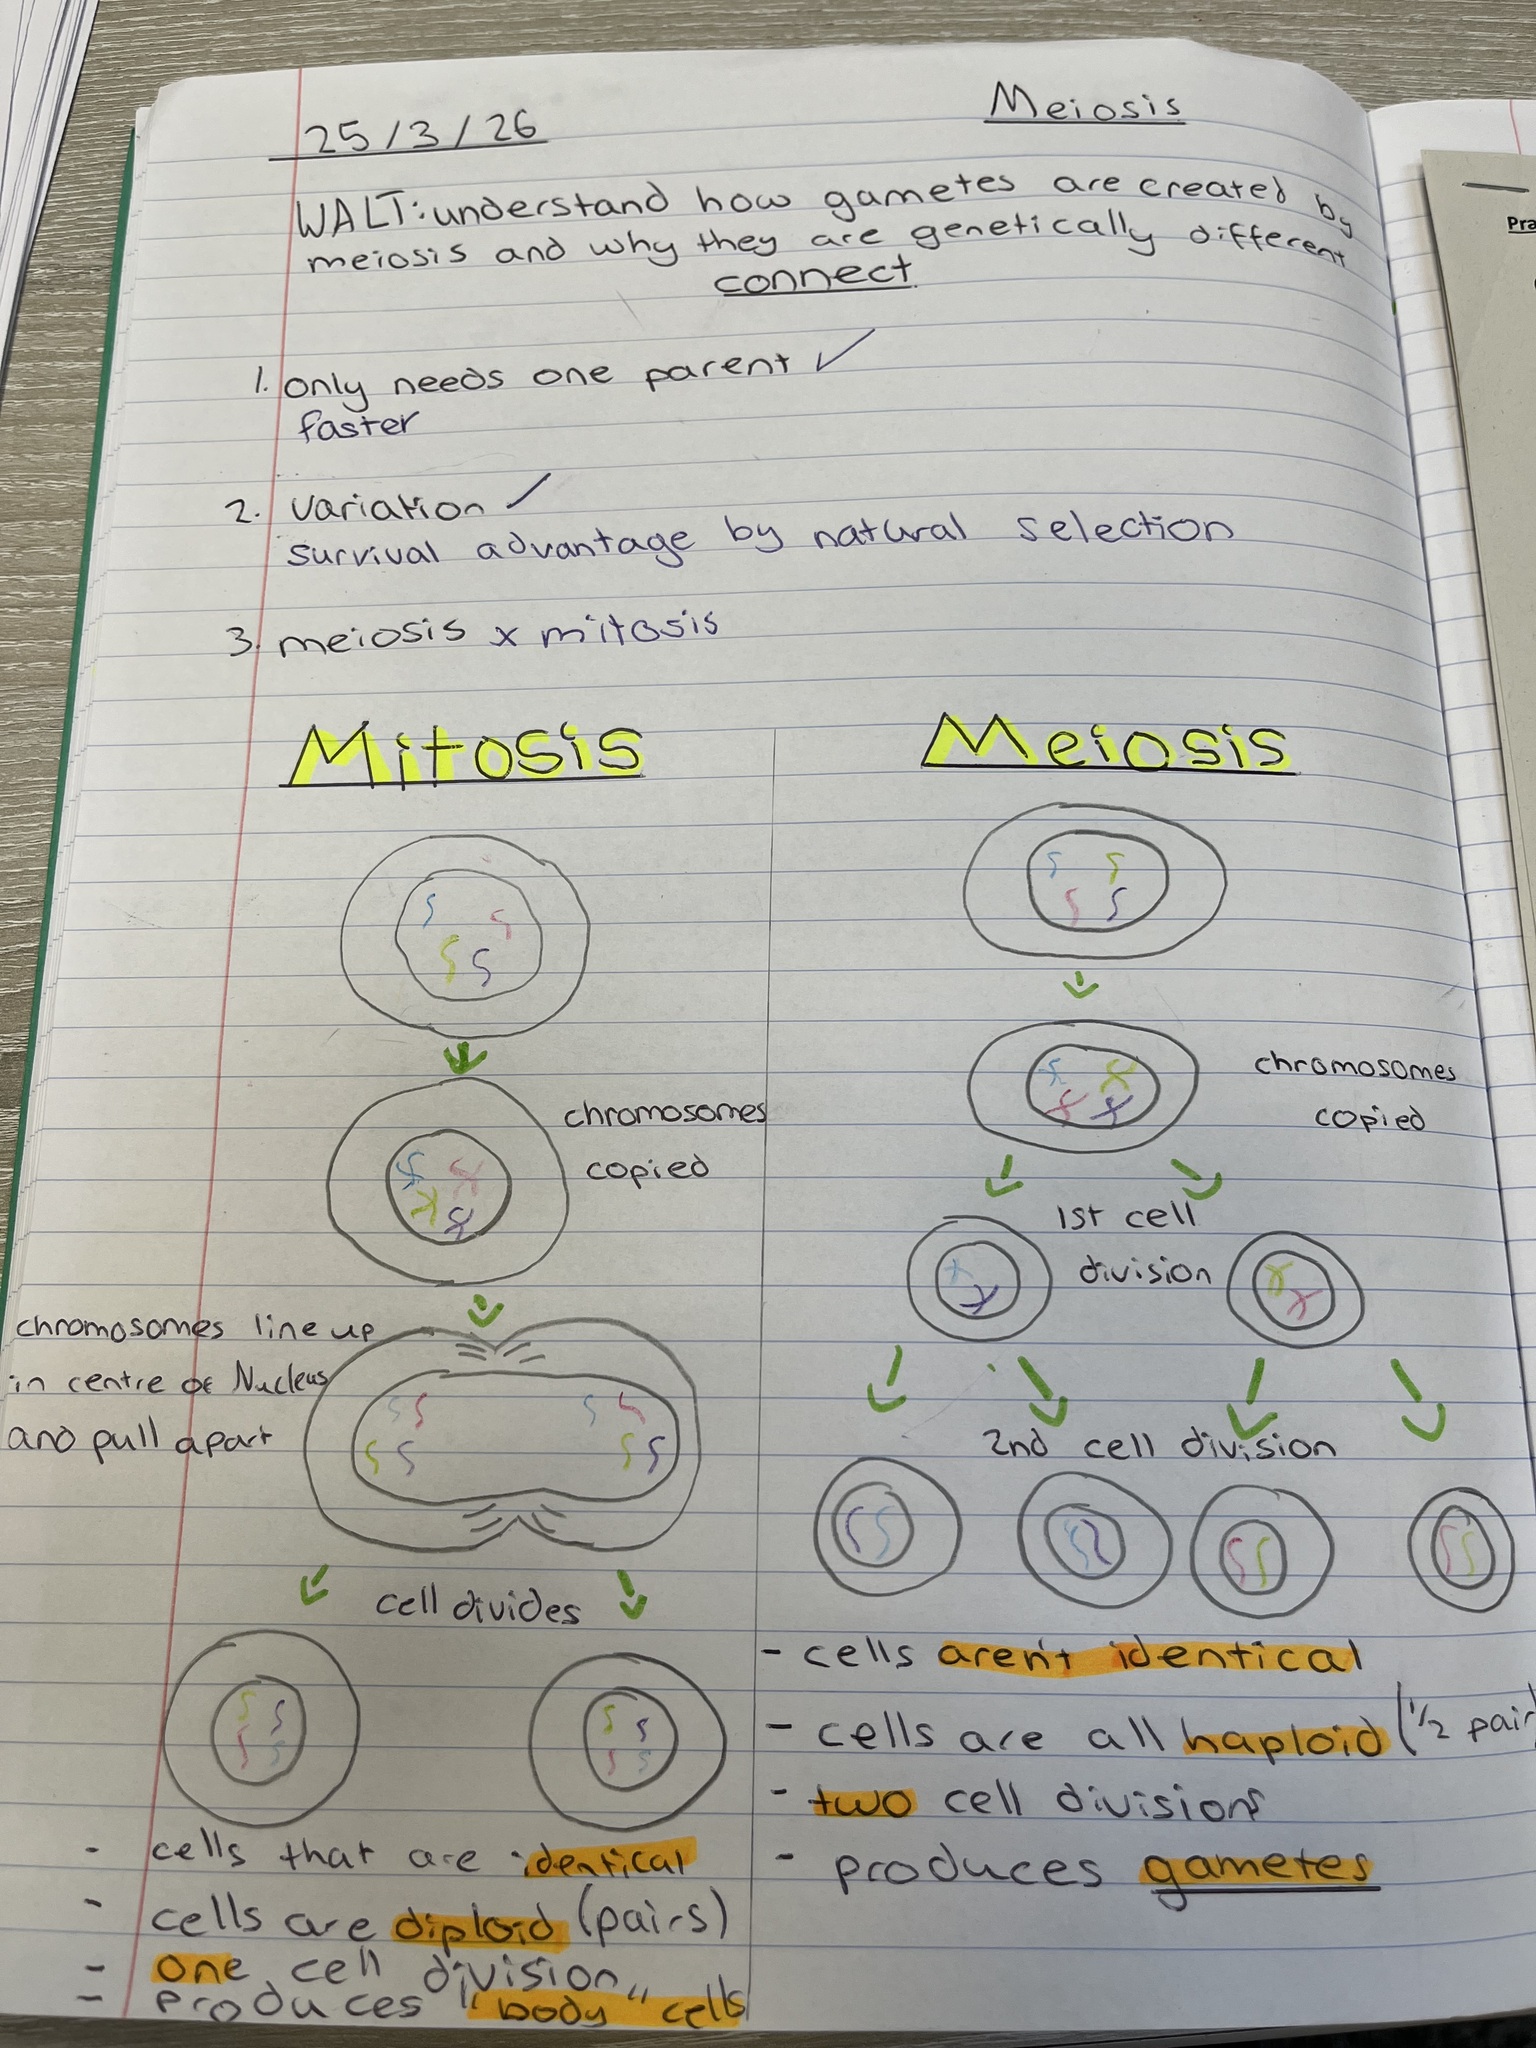 25/3/26
Meiosis
WALT: understand how gametes are created by
meiosis and why they are genetically different
connect
1. only needs one parent ✓
faster
2. variation ✓
survival advantage by natural selection
3. meiosis x mitosis
Mitosis
chromosomes
copied
chromosomes line up
in centre of Nucleus
and pull apart
cell divides
- cells that are identical
- cells are diploid (pairs)
- one cell division
- produces "body" cells
Meiosis
chromosomes
copied
1st cell
division
2nd cell division
- cells aren't identical
- cells are all haploid (1/2 pair
- two cell divisions
- produces gametes
Pra